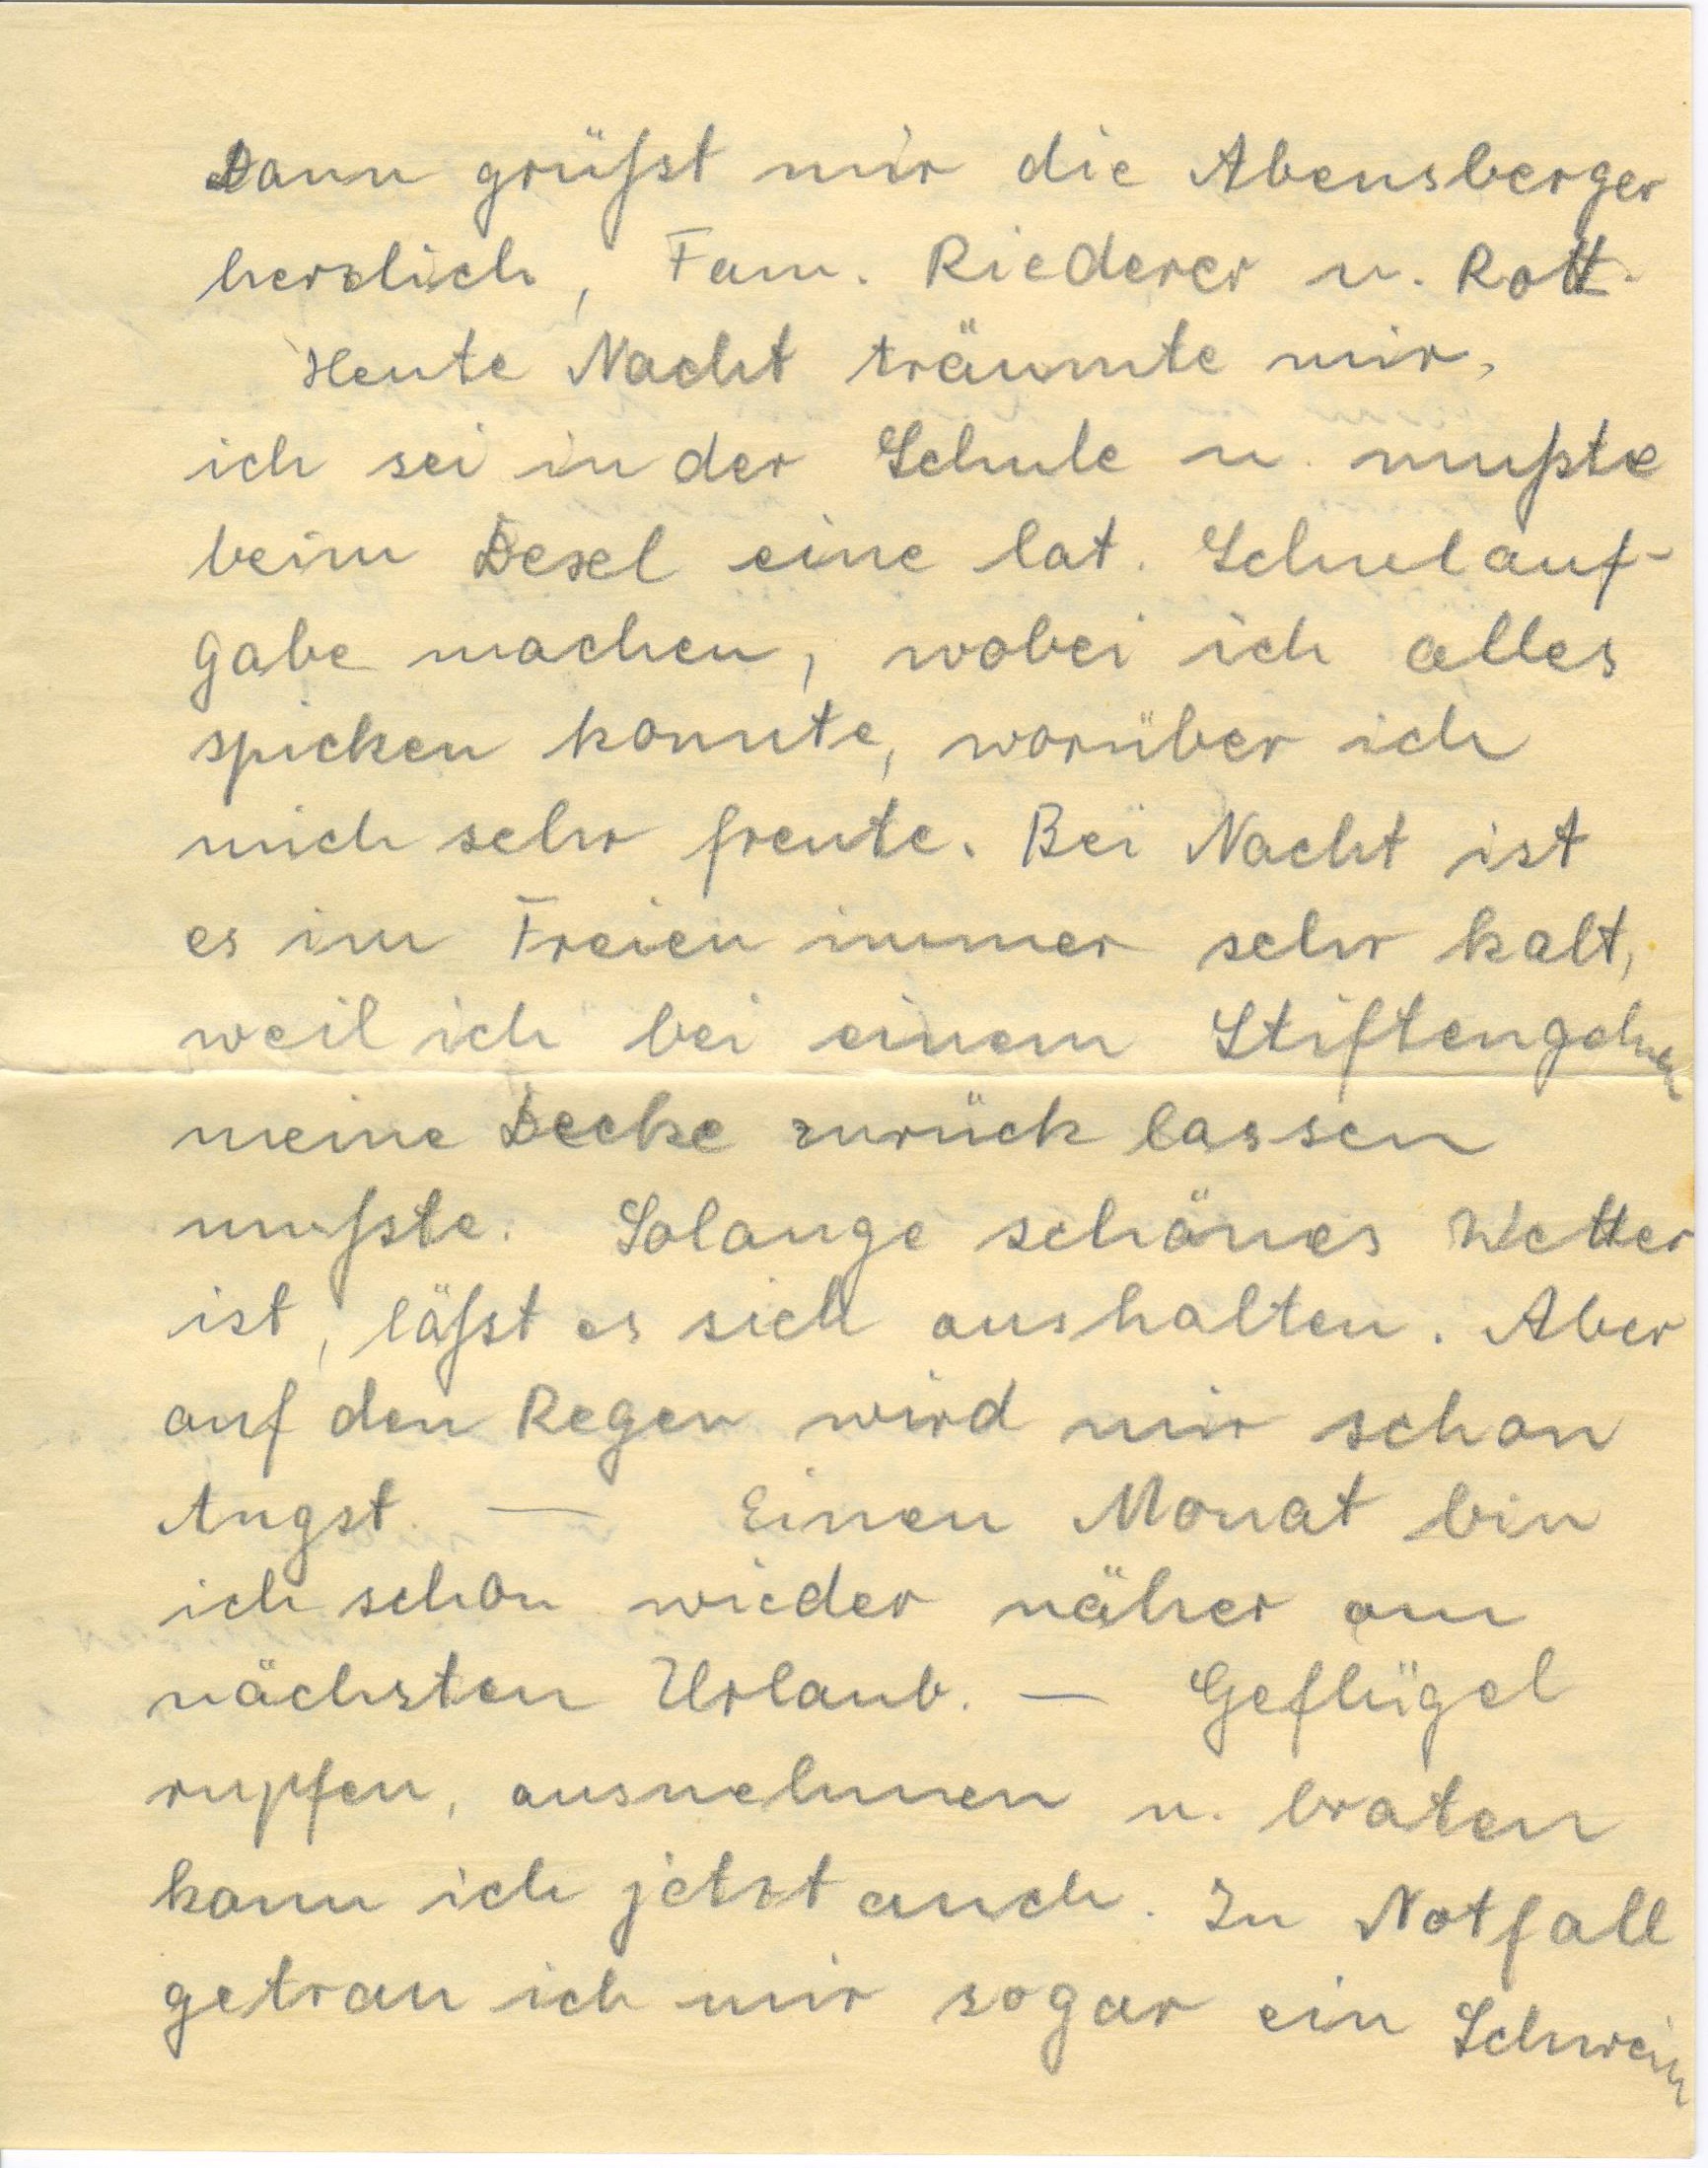 Dann grüßt mir die Abensberger
herzlich, Fam. Riederer u. Rott.
Heute Nacht träumte mir,
ich sei in der Schule u. mußte
beim Desel eine lat. Schulauf-
gabe machen, wobei ich alles
spicken konnte, worüber ich
mich sehr freute. Bei Nacht ist
es im Freien immer sehr kalt,
weil ich bei einem Stiftengehen
meine Decke zurück lassen
mußte. Solange schönes Wetter
ist, läßt es sich aushalten. Aber
auf den Regen wird mir schon
Angst. — Einen Monat bin
ich schon wieder näher am
nächsten Urlaub. — Geflügel
rupfen, ausnehmen u. braten
kann ich jetzt auch. In Notfall
getrau ich mir sogar ein Schwein